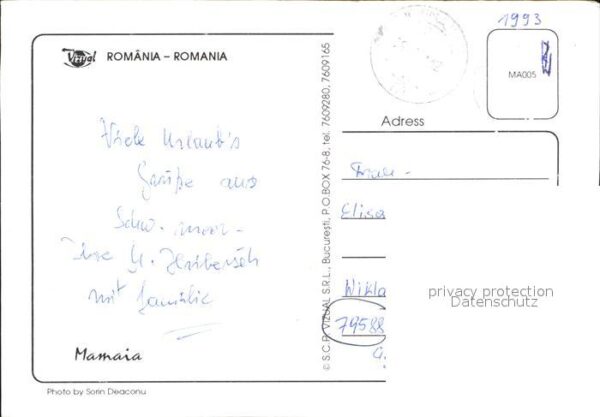 1993
Vizual ROMÂNIA – ROMANIA
MA005
Adress
Viele Urlaub's
Grüße aus
Schw. meer -
Ihre
mit Familie
Frau -
Elisa
Wikla
79588
Mamaia
Photo by Sorin Deaconu
© S.C.P. VIZUAL S.R.L., Bucureşti, P.O.BOX 76-8, tel. 7609280, 7609165
privacy protection
Datenschutz